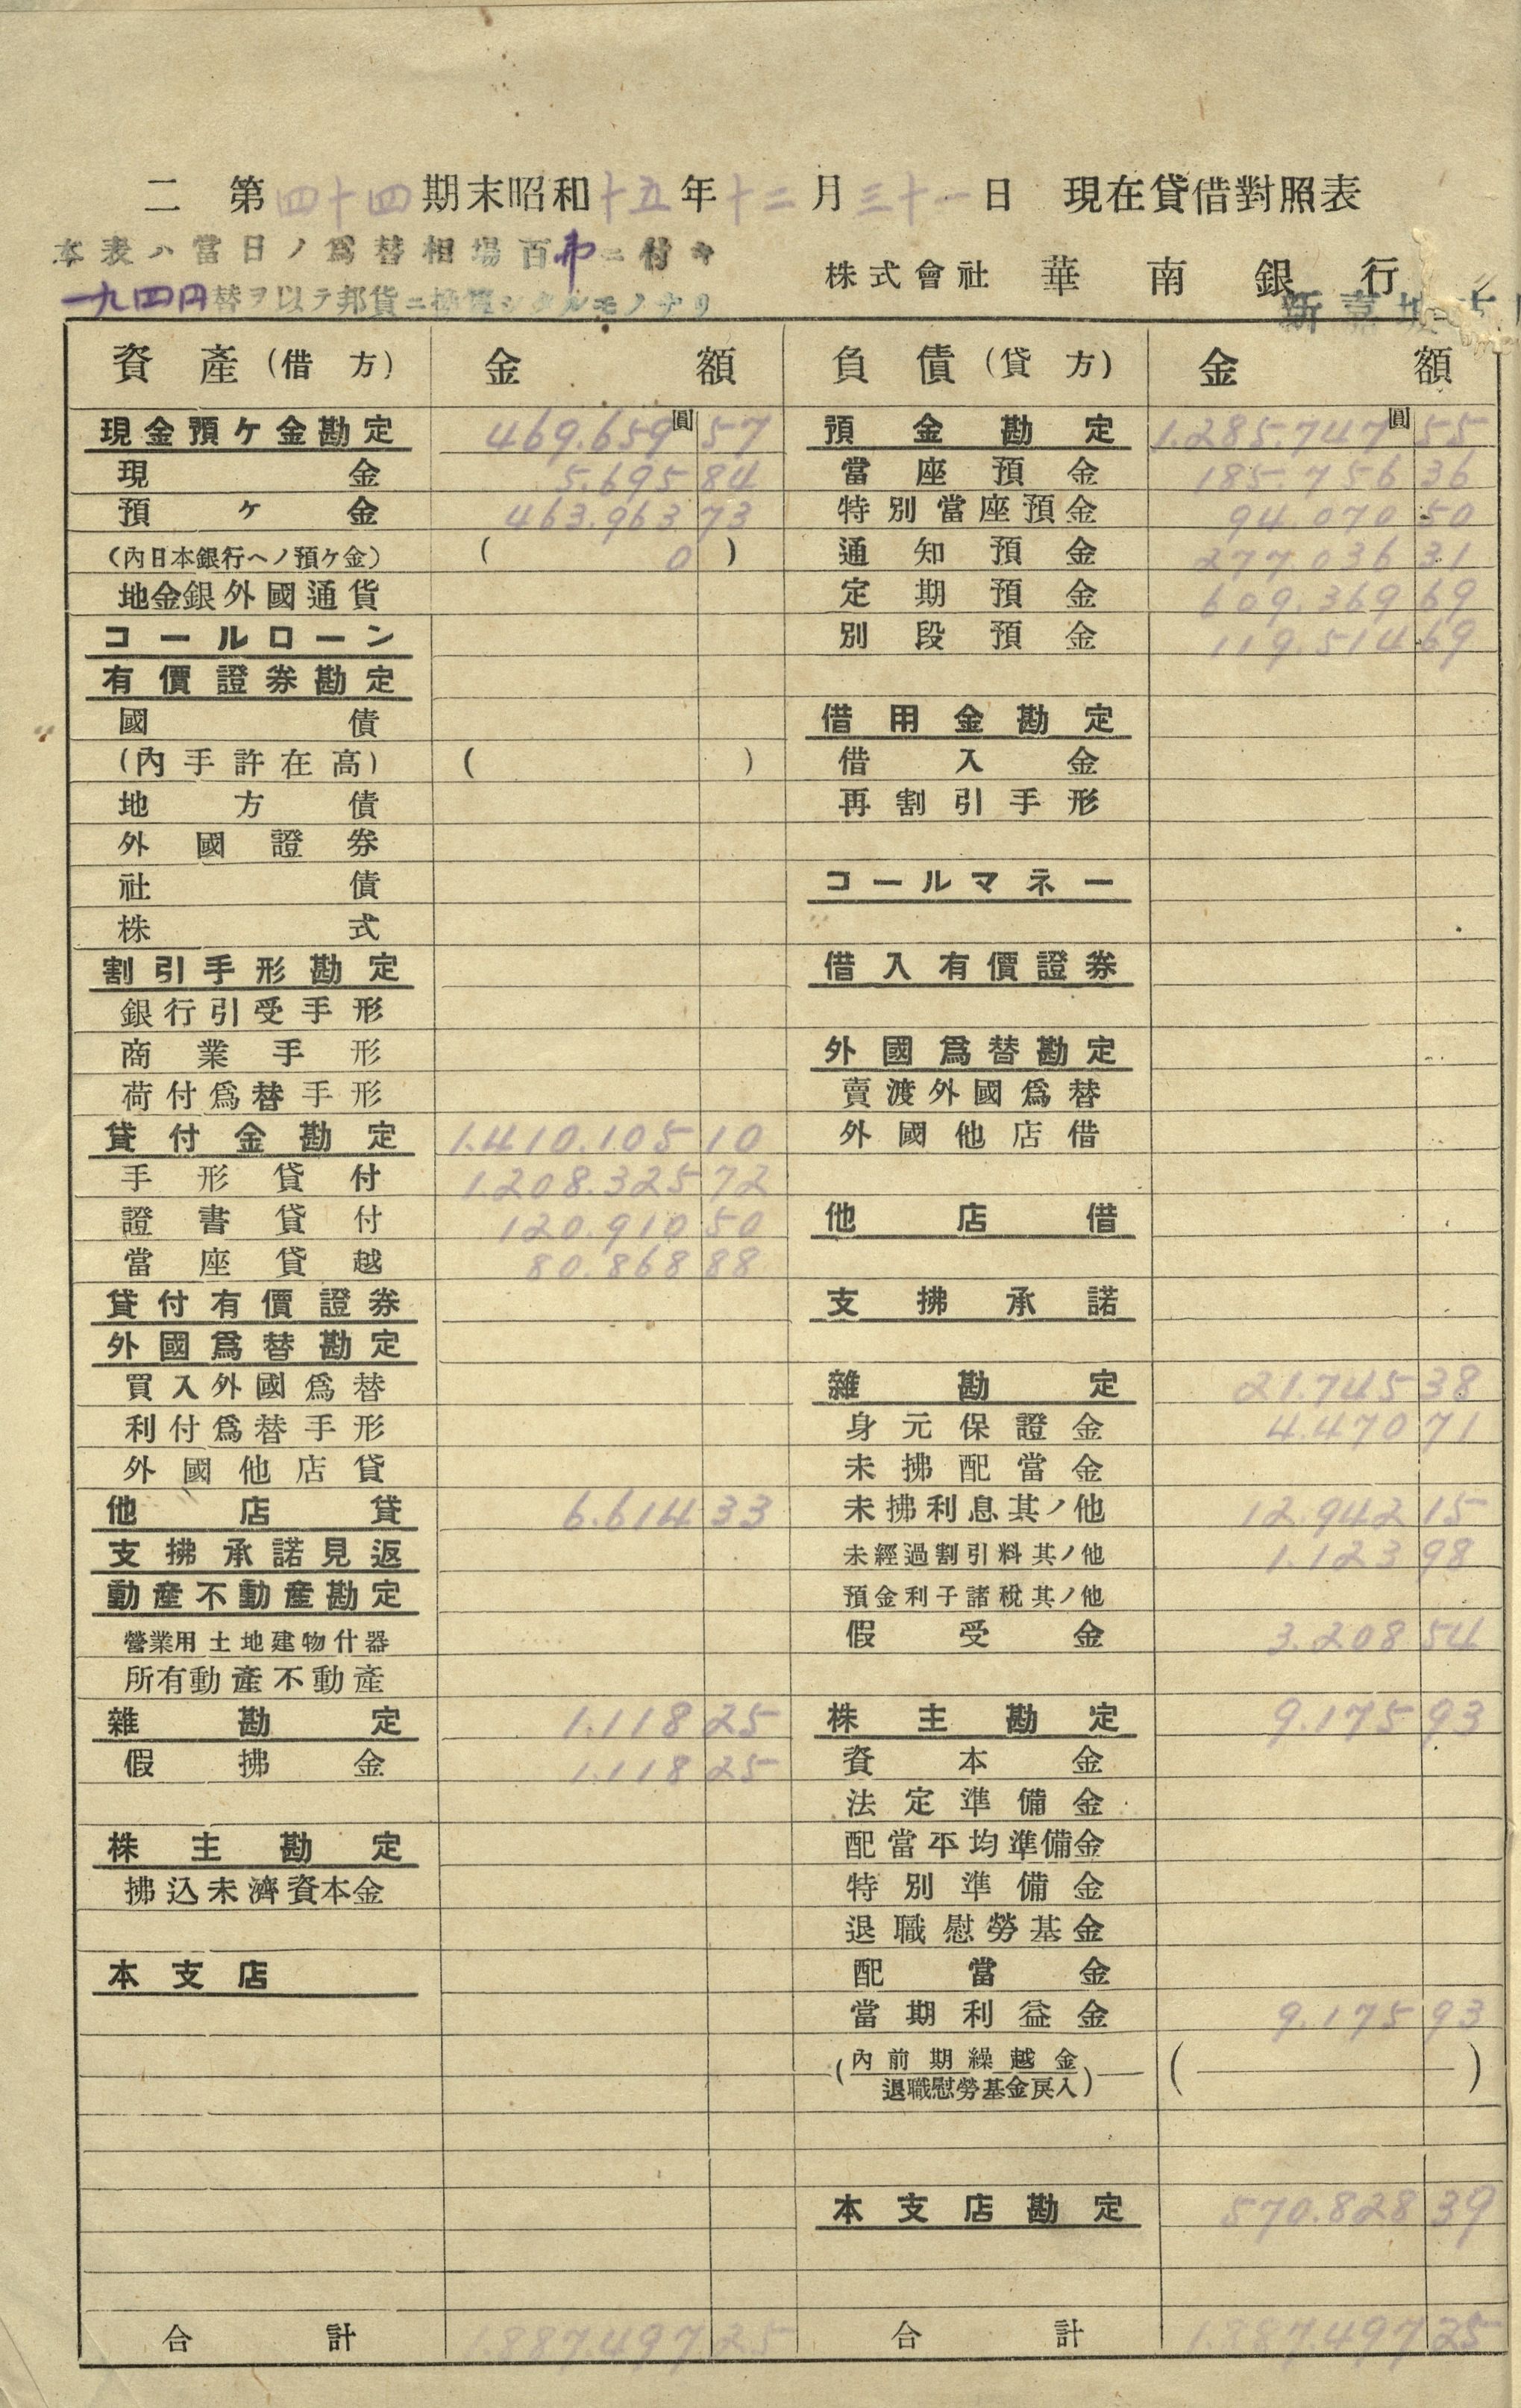 二 第四十四期末昭和十五年十二月三十一日 現在貸借對照表
本表ハ當日ノ爲替相場百弗ニ付キ
一九四円替ヲ以テ邦貨ニ換算シタルモノナリ
株式會社 華南銀行
新嘉坡支店
資產(借方) 金額 負債(貸方) 金額
現金預ケ金勘定 469.659圓57 預金勘定 1.285.747圓55
現金 5.695 84 當座預金 185.756 36
預ケ金 463.963 73 特別當座預金 94.070 50
(內日本銀行ヘノ預ケ金) ( 0 ) 通知預金 277.036 31
地金銀外國通貨 定期預金 609.369 69
コールローン 別段預金 119.514 69
有價證券勘定
國債 借用金勘定
(內手許在高) ( ) 借入金
地方債 再割引手形
外國證券
社債 コールマネー
株式
割引手形勘定 借入有價證券
銀行引受手形
商業手形 外國爲替勘定
荷付爲替手形 賣渡外國爲替
貸付金勘定 1.410.105 10 外國他店借
手形貸付 1.208.325 72
證書貸付 120.910 50 他店借
當座貸越 80.868 88
貸付有價證券 支拂承諾
外國爲替勘定
買入外國爲替 雜勘定 21.745 38
利付爲替手形 身元保證金 4.470 71
外國他店貸 未拂配當金
他店貸 6.614 33 未拂利息其ノ他 12.942 15
支拂承諾見返 未經過割引料其ノ他 1.123 98
動產不動產勘定 預金利子諸稅其ノ他
營業用土地建物什器 假受金 3.208 54
所有動產不動產
雜勘定 1.118 25 株主勘定 9.175 93
假拂金 1.118 25 資本金
法定準備金
株主勘定 配當平均準備金
拂込未濟資本金 特別準備金
退職慰勞基金
本支店 配當金
當期利益金 9.175 93
(內前期繰越金
退職慰勞基金戾入) ( )
本支店勘定 570.828 39
合計 1.887.497 25 合計 1.887.497 25